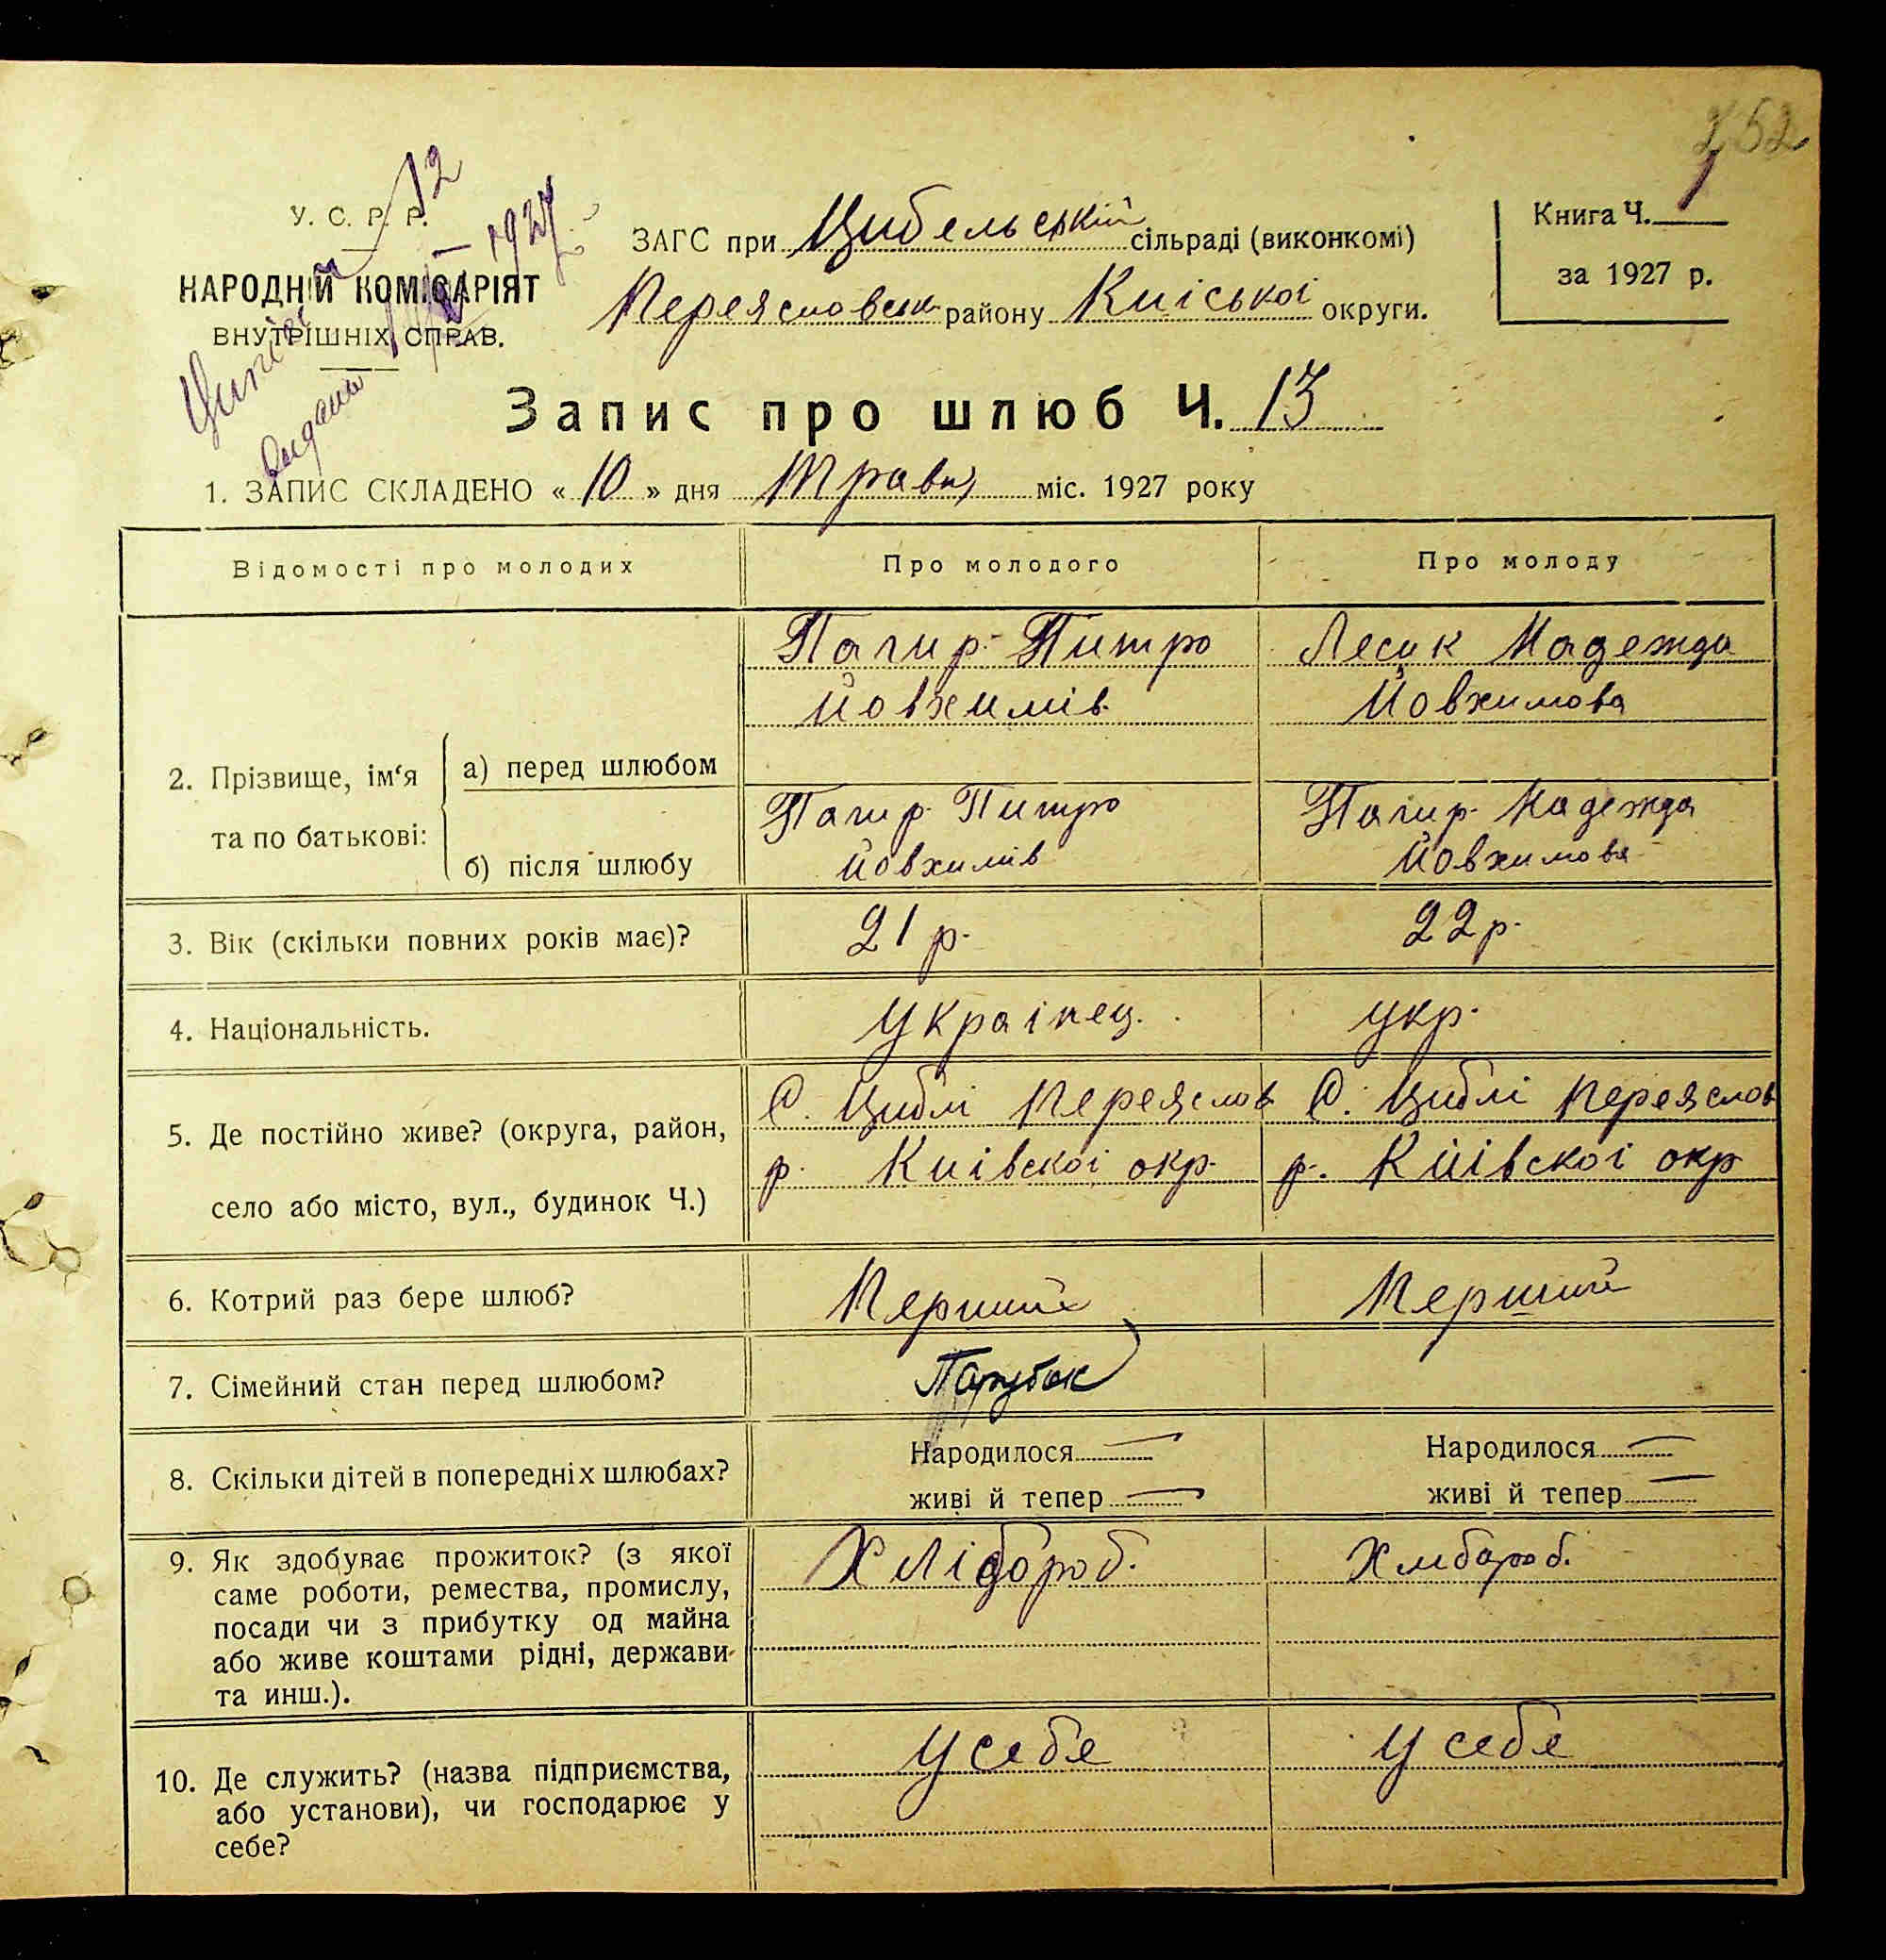 252
У. С. Р. Р.
12
1927
НАРОДНІЙ КОМІСАРІЯТ
ВНУТРІШНІХ СПРАВ.
видана
ЗАГС при Цибельській сільраді (виконкомі)
Переясловськ. району Киіської округи.
Книга Ч. 1
за 1927 р.
Запис про шлюб Ч. 13
1. ЗАПИС СКЛАДЕНО « 10 » дня Травн, міс. 1927 року
Відомості про молодих Про молодого Про молоду
2. Прізвище, ім‘я та по батькові:
а) перед шлюбом
Пагир Питро
Йовхимів
Лесик Надежда
Йовхимова
б) після шлюбу
Пагир Питро
Йовхимів
Пагир Надежда
Йовхимова
3. Вік (скільки повних років має)? 21 р. 22 р.
4. Національність. Українец. укр.
5. Де постійно живе? (округа, район,
село або місто, вул., будинок Ч.)
С. Циблі Переяслов
р. Киівскоі окр.
С. Циблі Переяслов
р. Киівскоі окр
6. Котрий раз бере шлюб? Перший Перший
7. Сімейний стан перед шлюбом? Парубок
8. Скільки дітей в попередніх шлюбах?
Народилося —
живі й тепер —
Народилося —
живі й тепер —
9. Як здобуває прожиток? (з якої
саме роботи, ремества, промислу,
посади чи з прибутку од майна
або живе коштами рідні, держави
та инш.).
Хлібороб.
Хлібороб.
10. Де служить? (назва підприємства,
або установи), чи господарює у
себе?
У себе
У себе